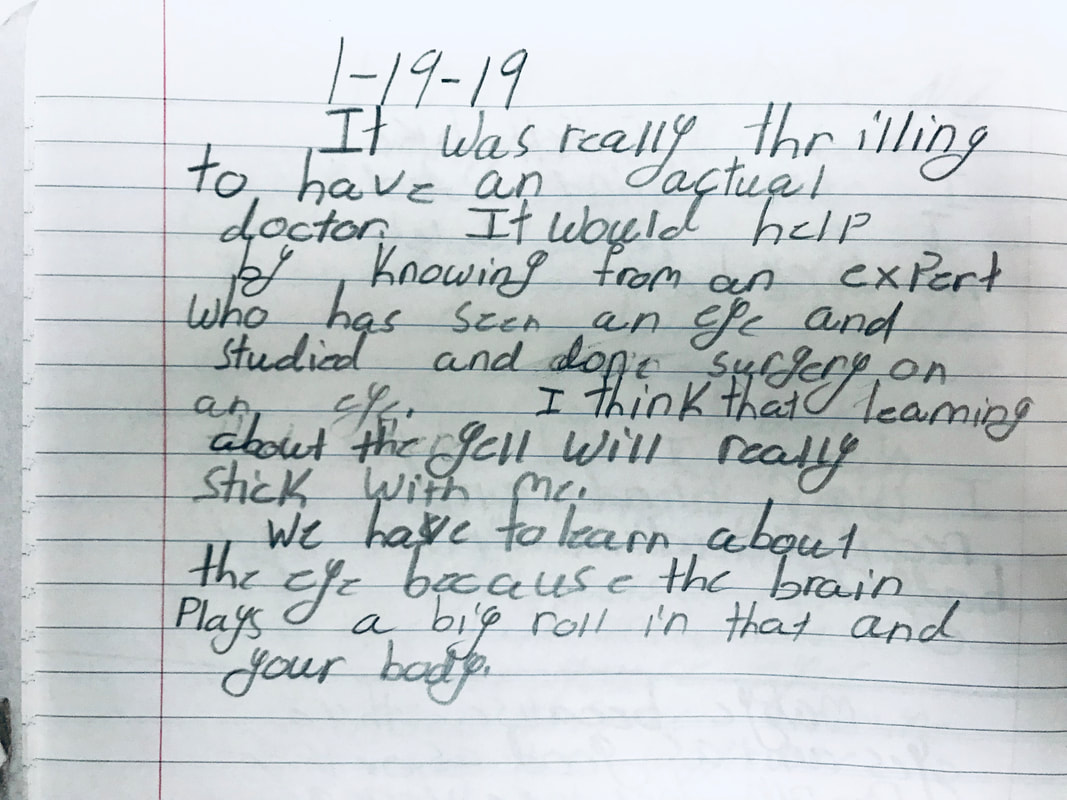 1-19-19
It was really thrilling
to have an actual
doctor. It would help
by knowing from an expert
who has seen an eye and
studied and done surgery on
an eye. I think that learning
about the gell will really
stick with me.
We have to learn about
the eye because the brain
Plays a big roll in that and
your body.